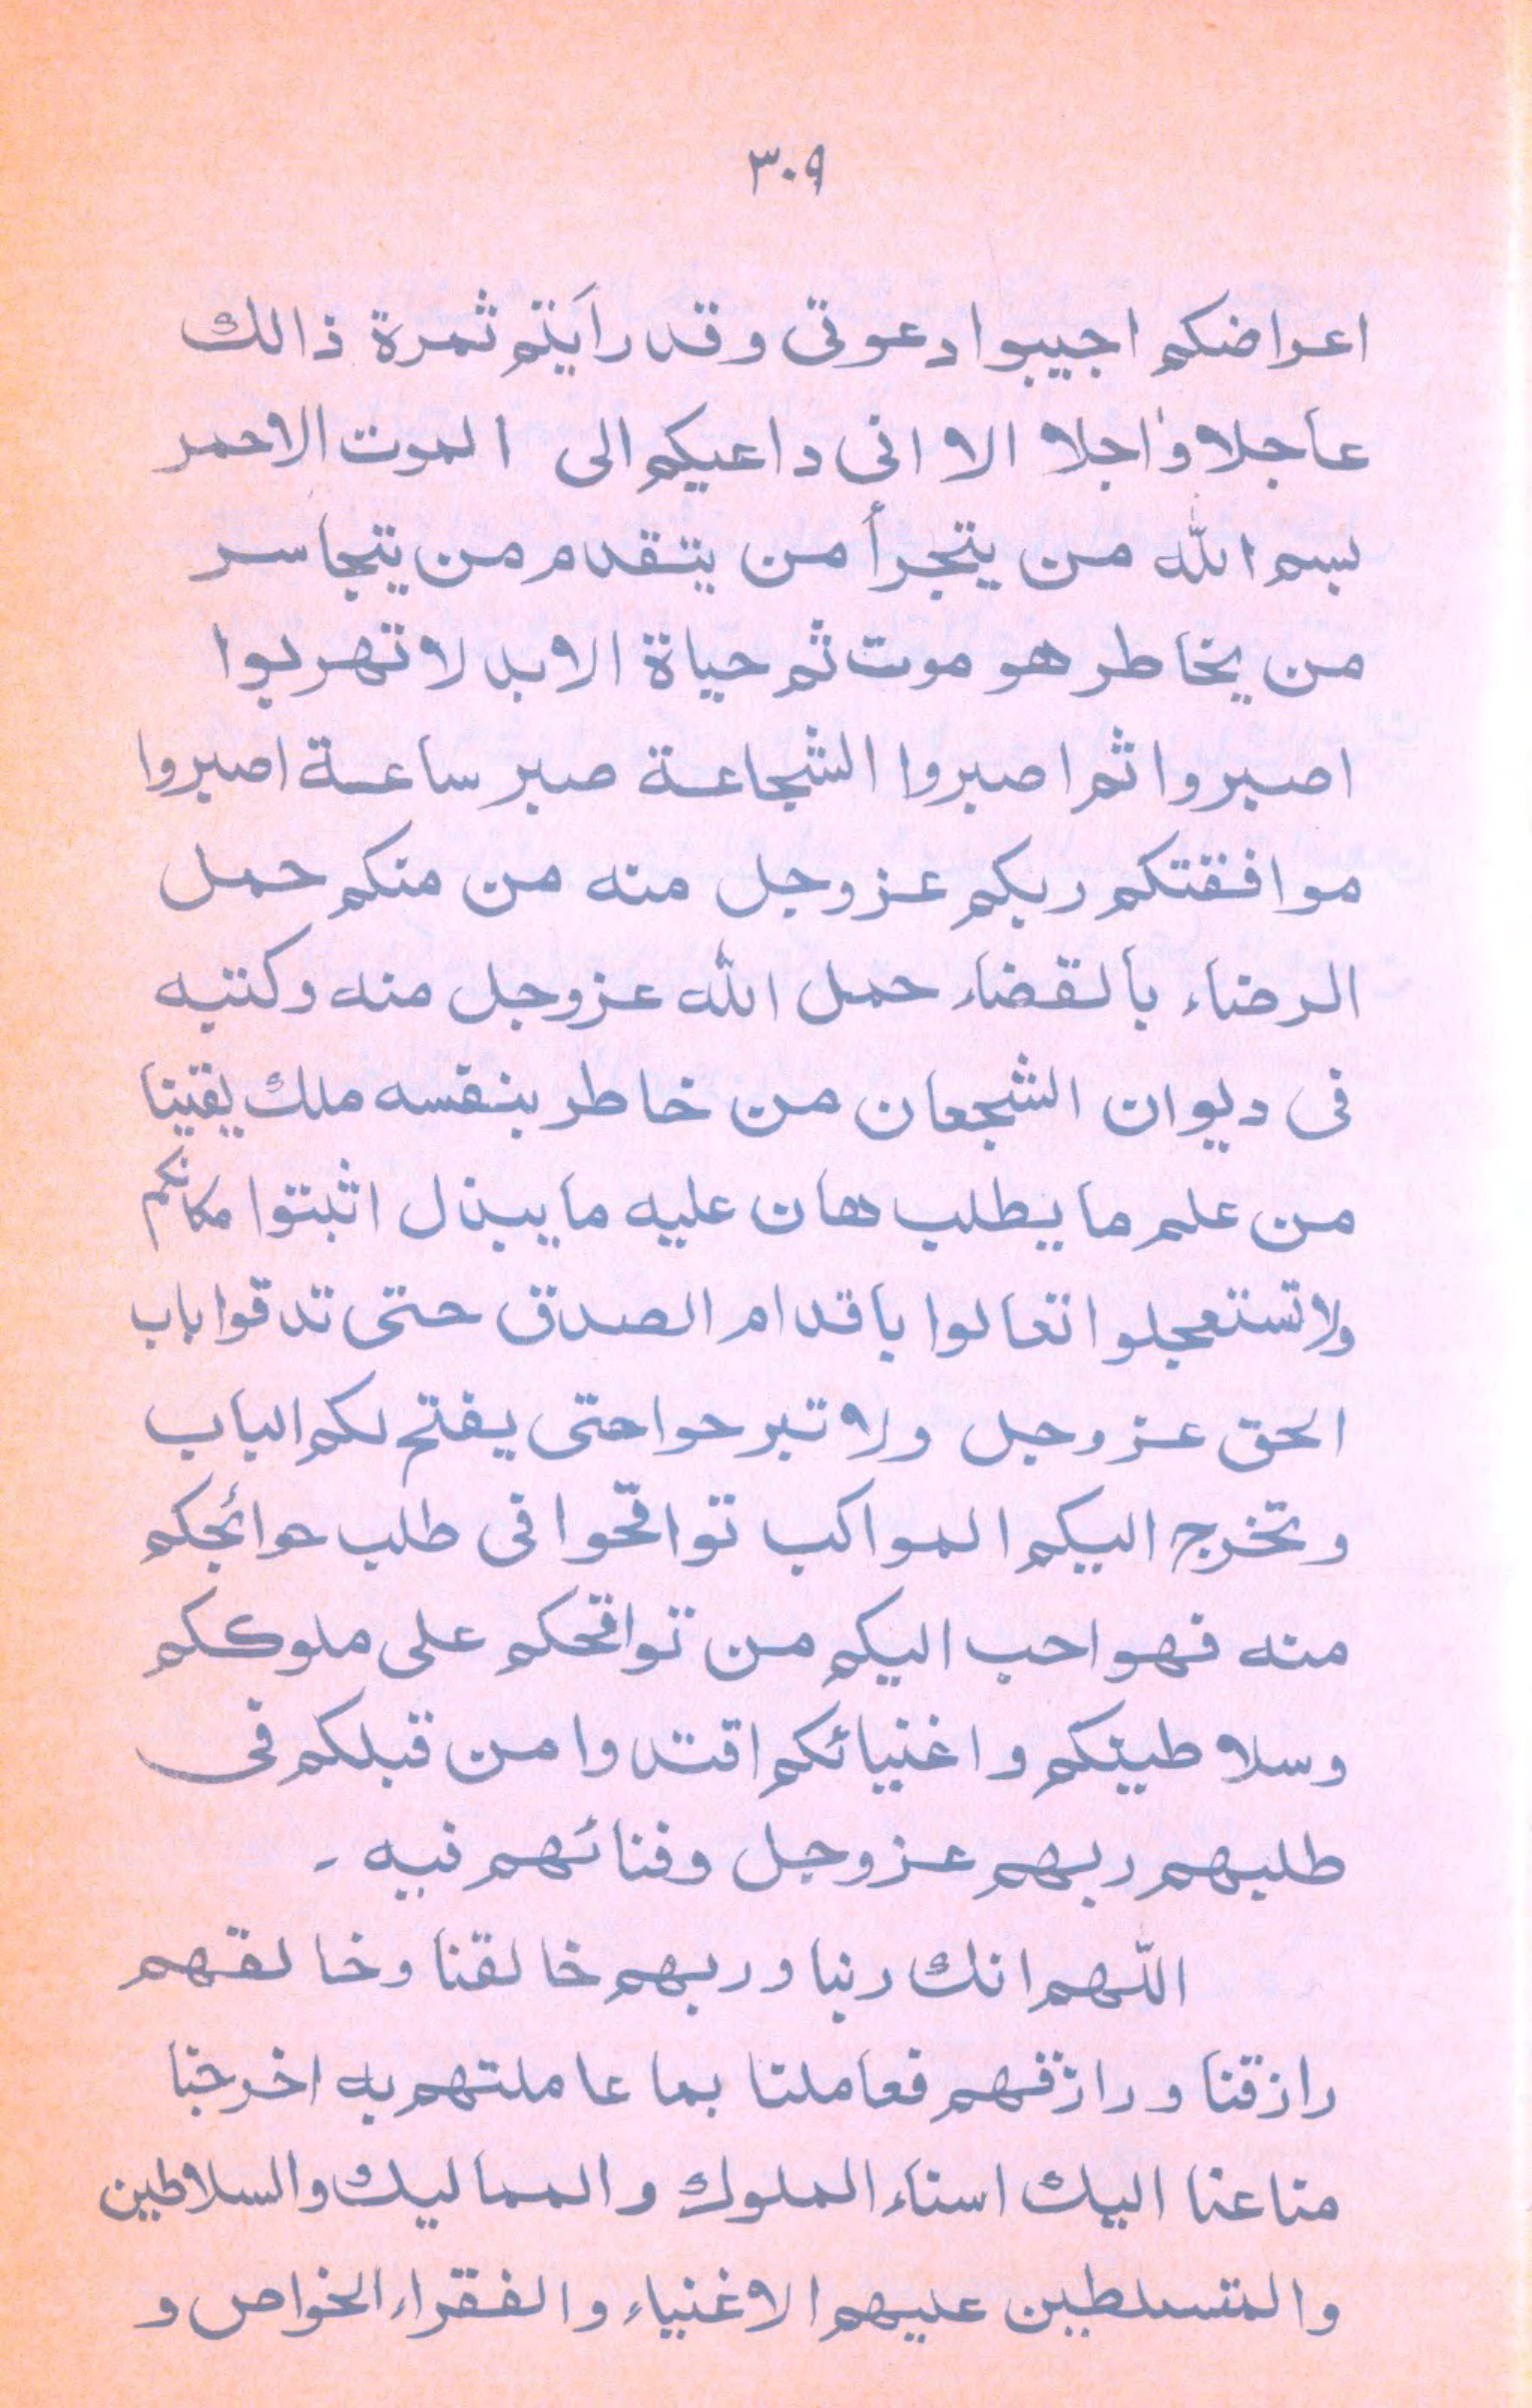 ٣٠٩
اعراضكم اجيبوا دعوتى وقد رأيتم ثمرة ذالك
عاجلا واجلا الا انى داعيكم الى الموت الاحمر
بسم الله من يتجرأ من يتقدم من يتجاسر
من يخاطر هو موت ثم حياة الابد لا تهربوا
اصبروا ثم اصبروا الشجاعة صبر ساعة اصبروا
موافقتكم ربكم عز وجل منه من منكم حمل
الرضاء بالقضاء حمل الله عز وجل منه وكتبه
فى ديوان الشجعان من خاطر بنفسه ملك يقينا
من علم ما يطلب هان عليه ما يبذل اثبتوا مكانكم
ولا تستعجلوا تعالوا باقدام الصدق حتى تدقوا باب
الحق عز وجل ولا تبرحوا حتى يفتح لكم الباب
وتخرج اليكم المواكب تواقحوا فى طلب حوائجكم
منه فهو احب اليكم من تواقحكم على ملوككم
وسلاطينكم واغنيائكم اقتدوا من قبلكم فى
طلبهم ربهم عز وجل وفنائهم فيه ـ
اللّهم انك ربنا وربهم خالقنا وخالقهم
رازقنا ورازقهم فعاملنا بما عاملتهم به اخرجنا
منا عنا اليك استاء الملوك والمماليك والسلاطين
والمتسلطين عليهم الاغنياء والفقراء الخواص و